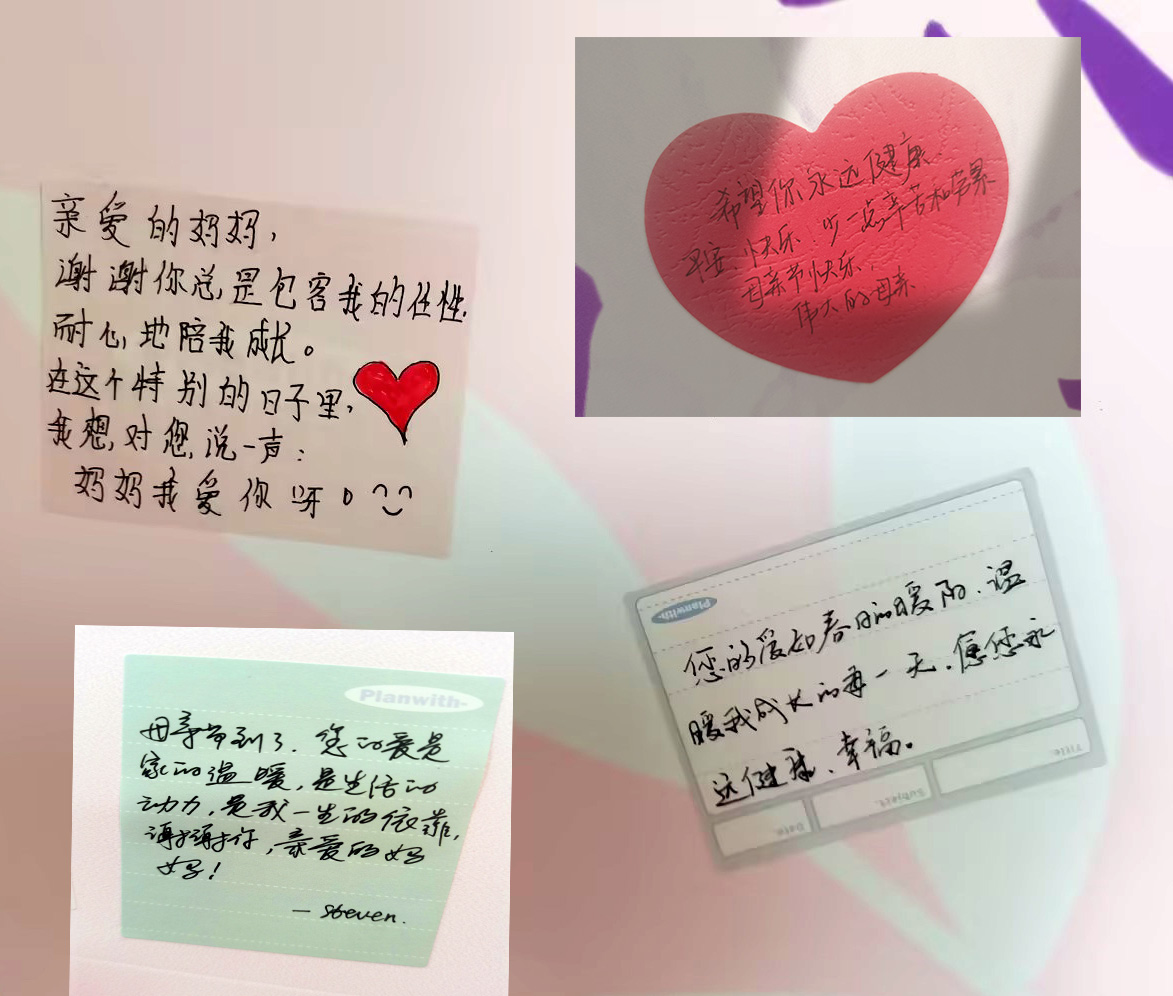 亲爱的妈妈，
谢谢你总是包容我的任性，
耐心地陪我成长。
在这个特别的日子里，
我想对您说一声：
妈妈我爱你呀。
希望你永远健康
平安、快乐，少一点辛苦和劳累
母亲节快乐，
伟大的母亲
Planwith-
母亲节到了，您的爱是
家的温暖，是生活的
动力，是我一生的依靠，
谢谢你，亲爱的妈
妈！
— steven.
Planwith-
您的爱如春日的暖阳、温
暖我成长的每一天，愿您永
远健康、幸福。
Title:
Subject:
Date: